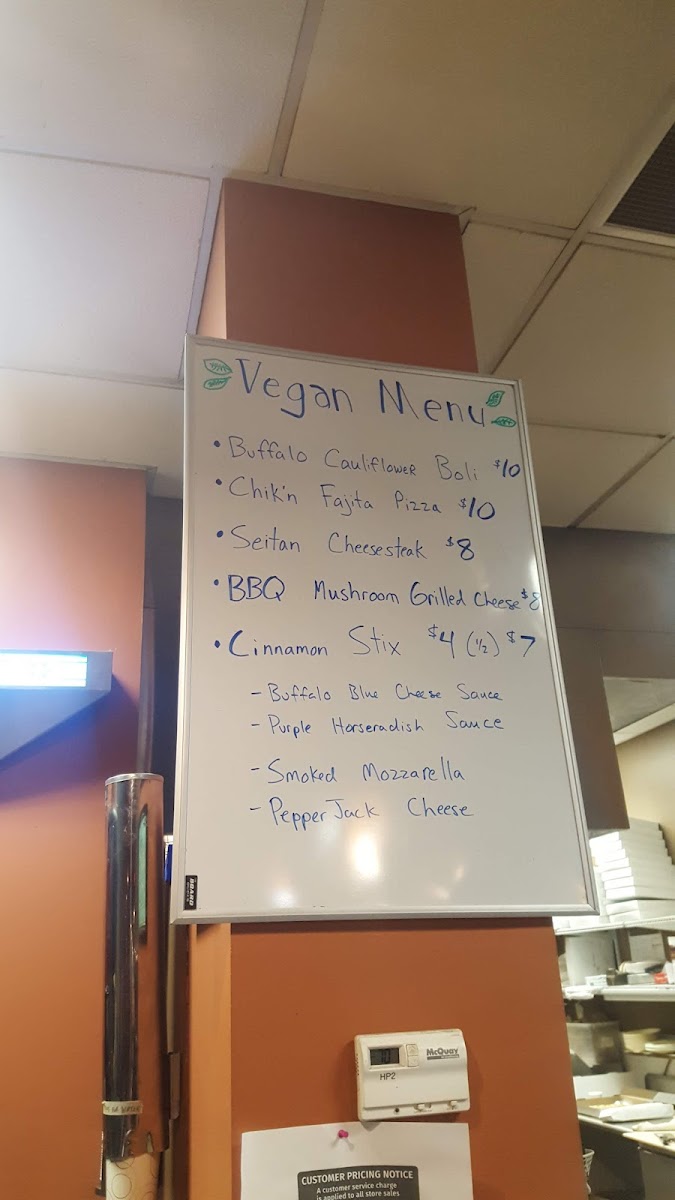 Vegan Menu
• Buffalo Cauliflower Boli $10
• Chik'n Fajita Pizza $10
• Seitan Cheesesteak $8
• BBQ Mushroom Grilled Cheese $8
• Cinnamon Stix $4 (1/2) $7
- Buffalo Blue Cheese Sauce
- Purple Horseradish Sauce
- Smoked Mozzarella
- Pepper Jack Cheese
BOARD
McQuay
HP2
CUSTOMER PRICING NOTICE
A customer service charge
is applied to all store sales